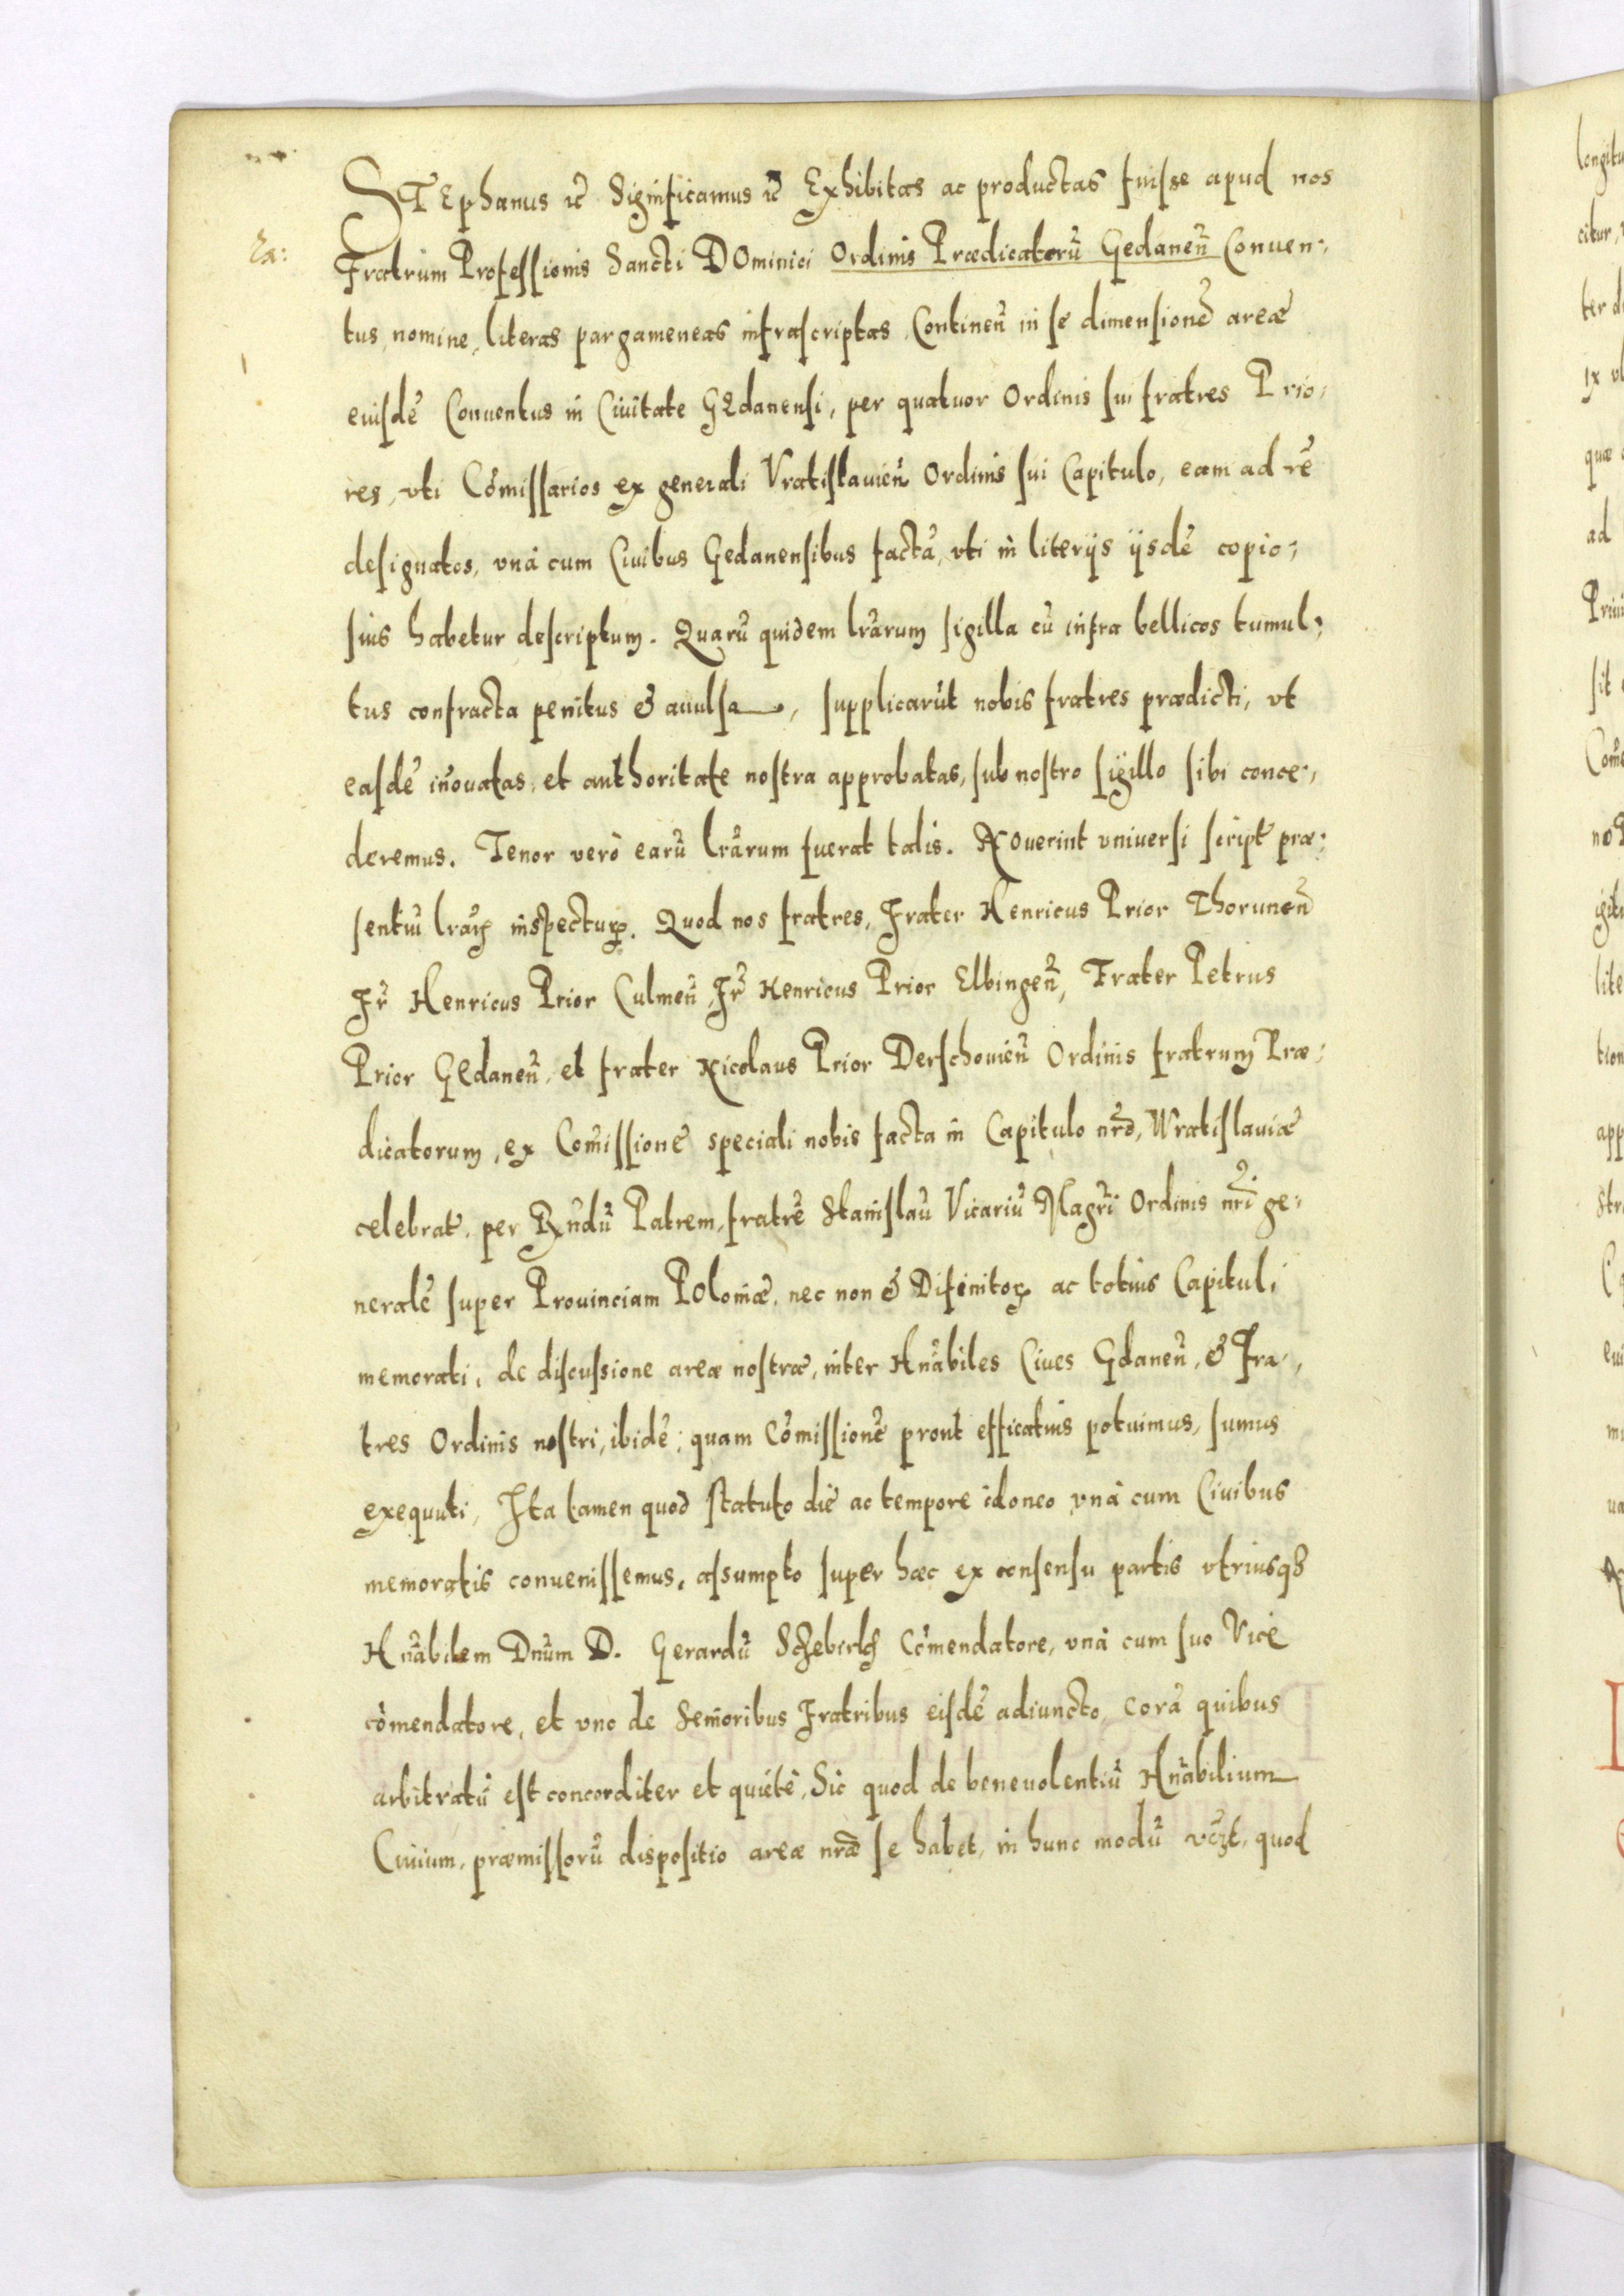 STEphanus ꝛc̃ Significamus ꝛc̃ Exhibitas ac productas fuisse apud nos
Ex:
Fratrum Professionis Sancti DOminici Ordinis Prædicatorũ Gedaneñ Conuen-
tus, nomine, literas pargameneas infrascriptas, Contineñ in se dimensionẽ areæ
eiusdẽ Conuentus in Ciuitate GEdanensi, per quatuor Ordinis sui fratres Prio-
res, vti Cõmissarios ex generali Vratislauieñ Ordinis sui Capitulo, eam ad rẽ
designatos, vnà cum Ciuibus Gedanensibus factã, vti in literijs ijsdẽ copio-
sius habetur descriptum. Quarũ quidem lr̃arum sigilla cũ infra bellicos tumul-
tus confracta penitus & auulsa, supplicarũt nobis fratres prædicti, vt
easdẽ iñouatas, et authoritate nostra approbatas, sub nostro sigillo sibi conce-
deremus. Tenor verò earũ lr̃arum fuerat talis. NOuerint vniuersi script̃ præ-
sentiũ lr̃aꝝ inspectuꝝ. Quod nos fratres, Frater Henricus Prior Thoruneñ
Fr̃ Henricus Prior Culmeñ, Fr̃ Henricus Prior Elbingeñ, Frater Petrus
Prior GEdaneñ, et frater Nicolaus Prior Derschouieñ Ordinis fratrum Præ-
dicatorum, ex Com̃issionẽ speciali nobis facta in Capitulo nr̃o, Wratislauiæ
celebrat̃, per Rñdũ Patrem, fratrẽ Stanislaũ Vicariũ Magr̃i Ordinis nr̃i ge-
neralẽ super Prouinciam POloniæ, nec non & Difinitoꝝ ac totius Capituli
memorati, de discussione areæ nostræ, inter Hñabiles Ciues Gdaneñ, & Fra-
tres Ordinis nostri, ibidẽ; quam Cõmissionẽ prout efficatius potuimus, sumus
exequuti, Ita tamen quod statuto die ac tempore idoneo vnà cum Ciuibus
memoratis conuenissemus, assumpto super hæc ex consensu partis vtriusqȝ
Hñabilem Dñum D. Gerardũ Cõmendatore, vnà cum suo Vice
cõmendatore, et vno de Senioribus Fratribus eisdẽ adiuncto, corã quibus
arbitratũ est concorditer et quiétè, Sic quod de beneuolentiũ Hñabilium
Ciuium, præmissorũ dispositio areæ nr̃æ se habet, in hunc modũ vc̃zt, quod